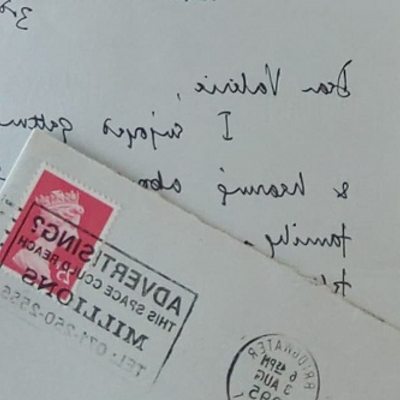 Dear Valerie,
I enjoyed
& hearing
family.
ADVERTISING?
THIS SPACE COULD REACH
MILLIONS
TEL: 071-250-2556
BRIDGWATER
6 45PM
3 AUG